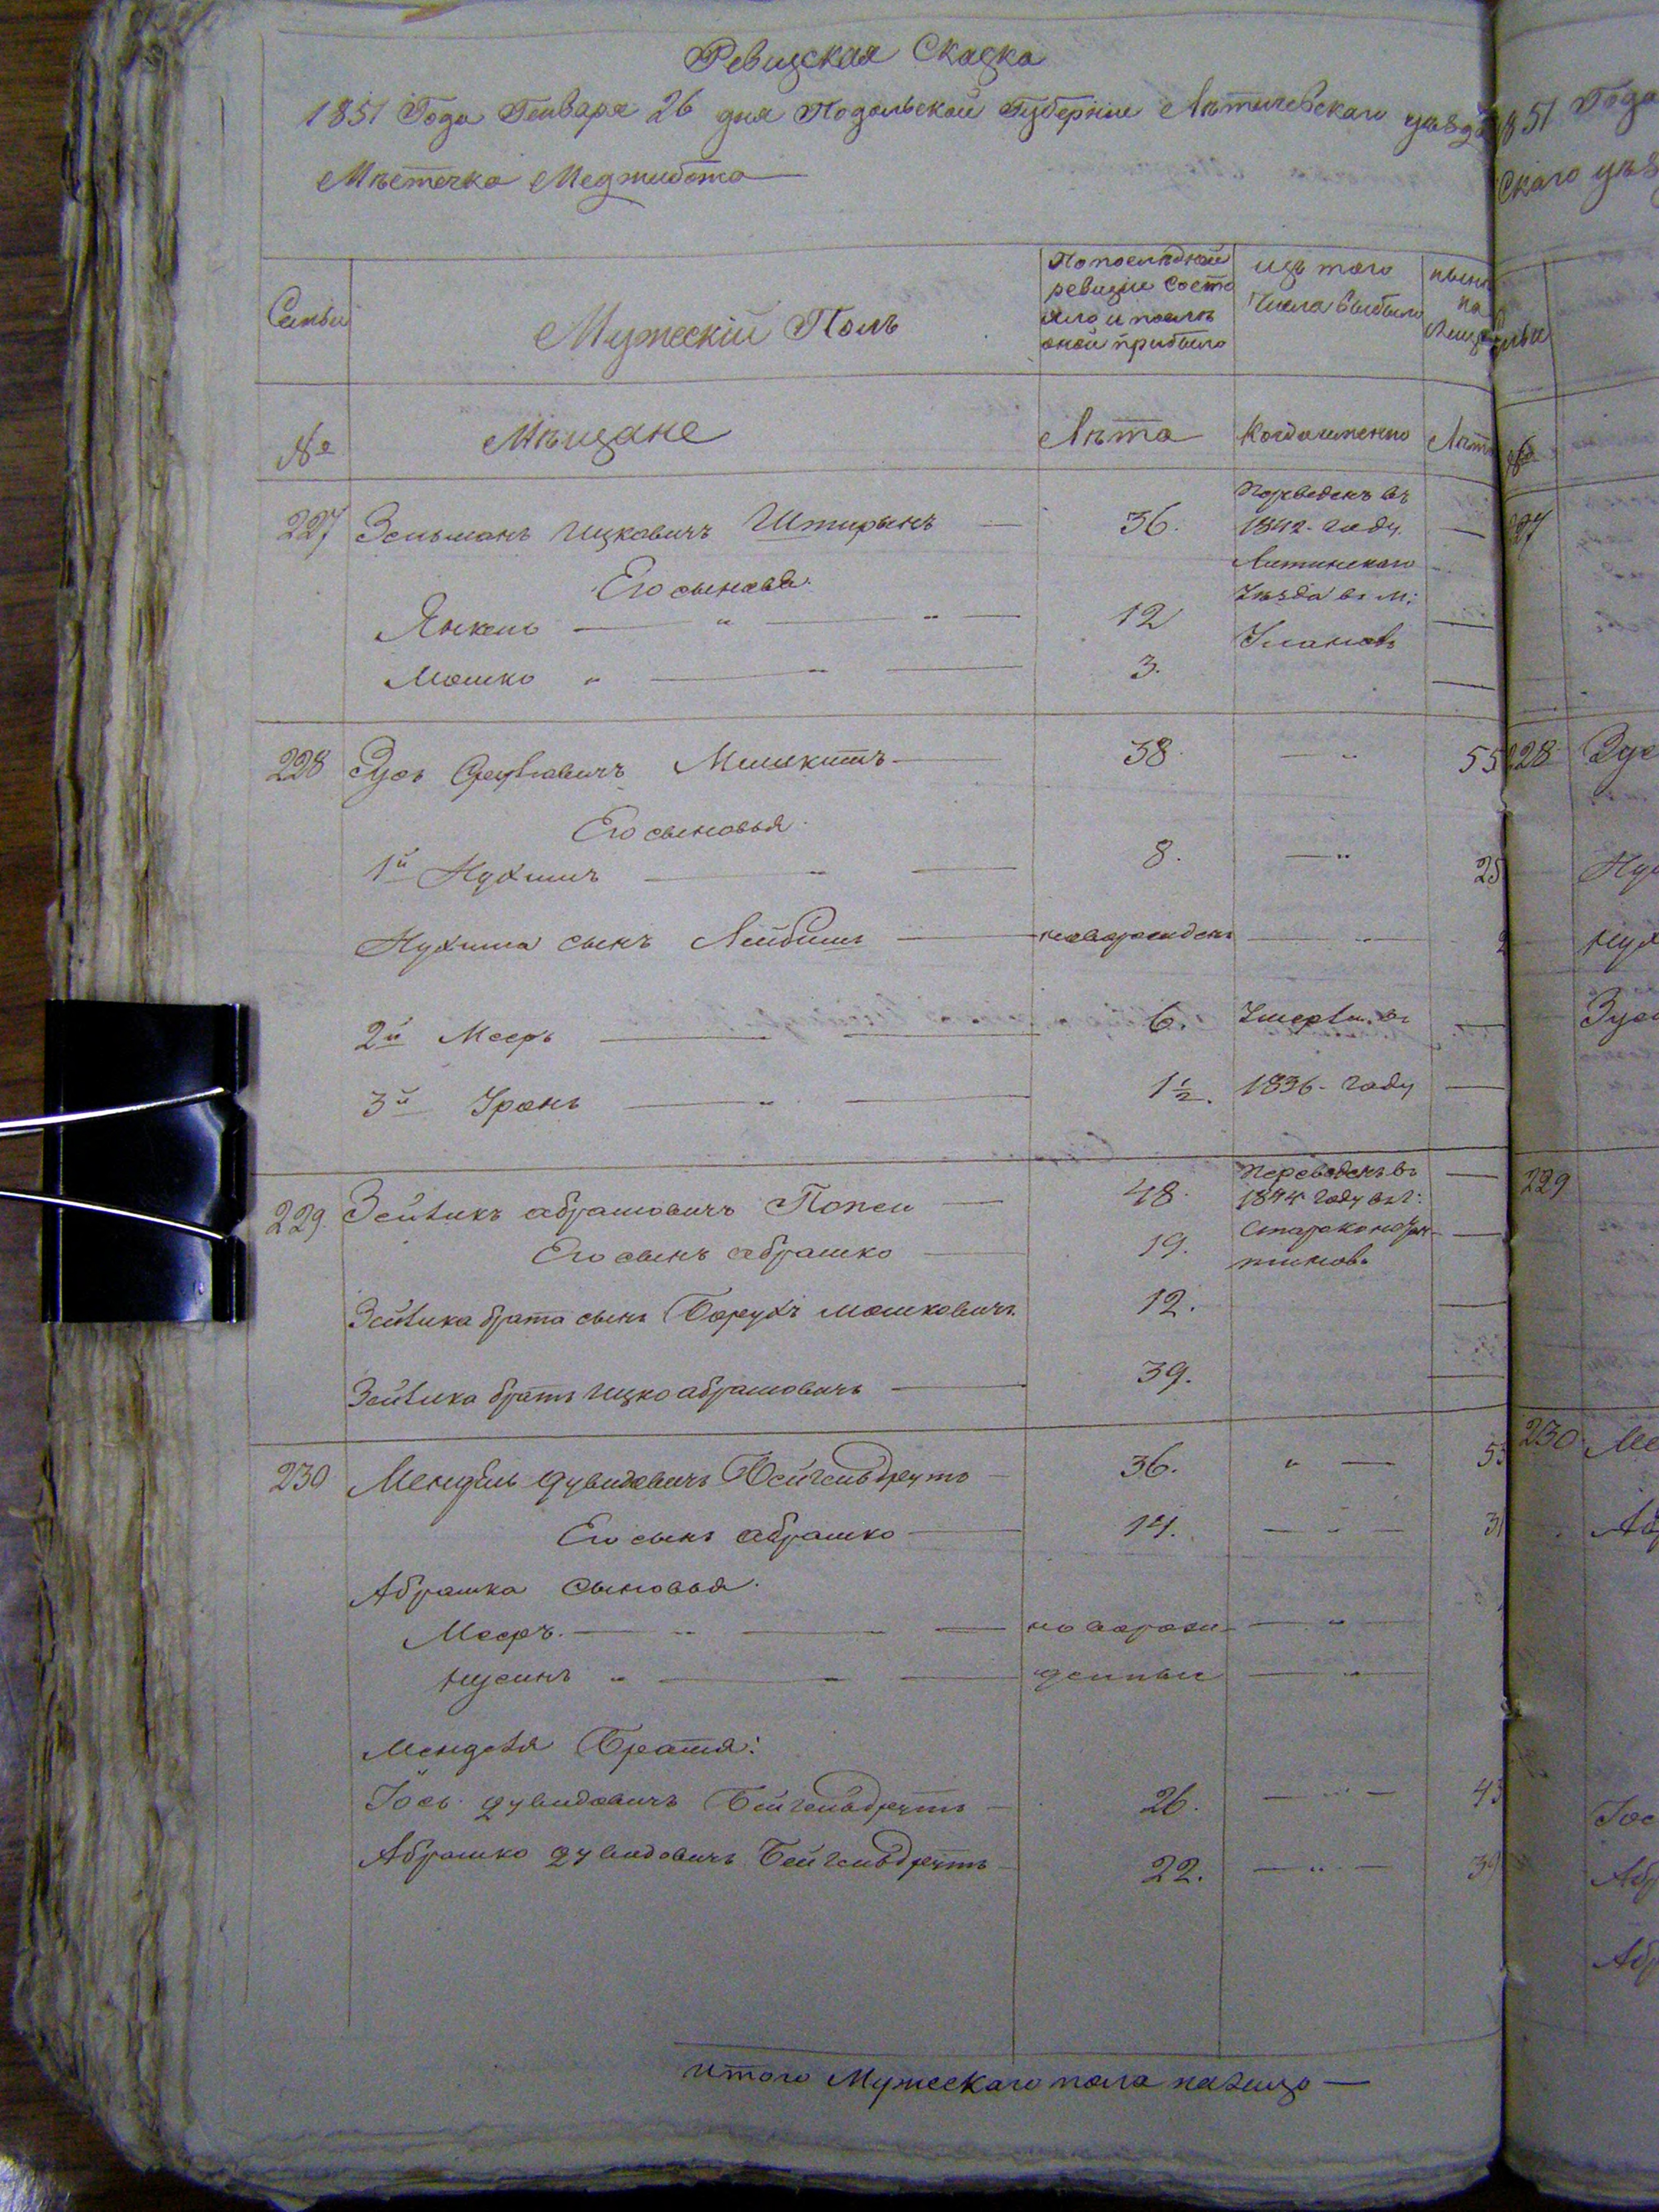 Ревизская Сказка
1851 Года Генваря 26 дня Подольской Губернии Летичевскаго уезда
Местечка Меджибожа
Семьи
Мужескій Полъ
По последней ревизіи состояло и после оной прибыло
изъ того числа выбыло
ныне на лицо
№
Мещане
Лета
Когда именно
Лета
227 Зельманъ Ицковичъ Штирынъ — 36. Переведенъ въ 1842 году Литинскаго Уезда въ м: Улановъ —
Его сыновья
Янкель — " — " — 12 —
Мошко " — " — 3. —
228 Зусь Мишкитъ — 38 — " 55
Его сыновья
1й Нухимъ — " — 8. — " 25
Нухима сынъ Лейбишъ — новорожденъ — " — 2
2й Мееръ — — 6. Умерли въ —
3й Уронъ — " — 1½. 1836 году —
229 Зейликъ Абрамовичъ Попел — 48. Переведены въ 184 году въ г: Староконстантиновъ —
Его сынъ Абрашко — 19. —
Зейлика брата сынъ Борухъ Мошковичъ 12. —
Зейлика братъ Ицко Абрамовичъ — 39. —
230 Мендель Дувидовичъ Бейгельдрутъ — 36. " — 53
Его сынъ Абрашко — 14. — " — 31
Абрашка Сыновья
Мееръ — " — " — новорож- — " —
Нусинъ " — " — денные — " —
Менделя Братья:
Іось Дувидовичъ Бейгельдрутъ — 26. — " — 43
Абрашко Дувидовичъ Бейгельдрутъ — 22. — " — 39
Итого Мужескаго пола налицо —
1851 Года
скаго уез
227
228 Зус
Нух
Нух
Зус
229
230 Ме
Аб
Іос
Абр
Абр